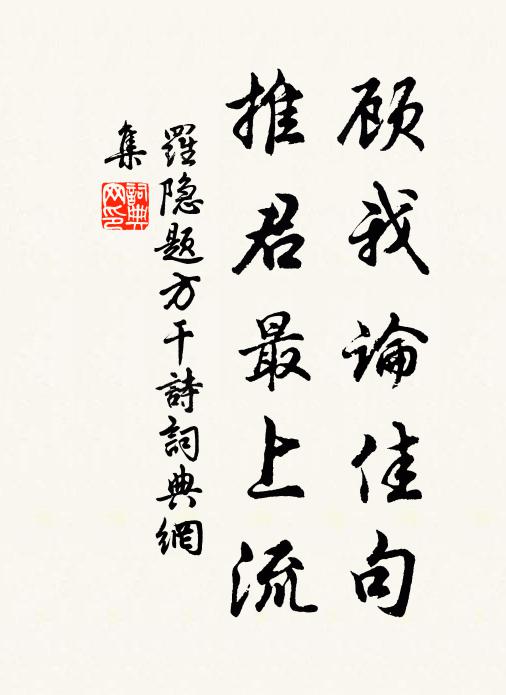 顾我論佳句
推君最上流
羅隐题方干詩詞典網
集
詞典网印